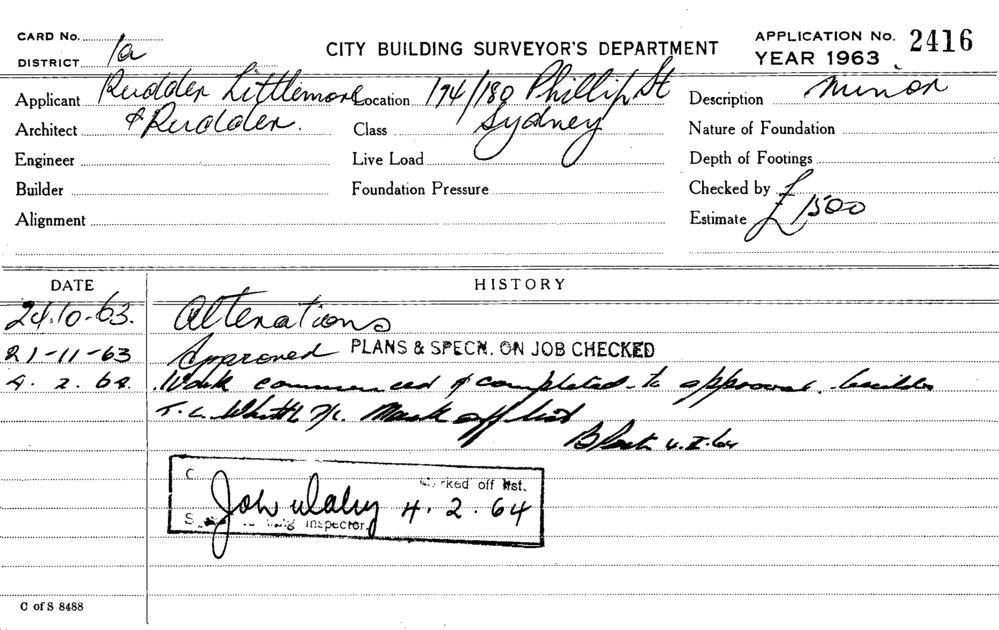 CARD No.
APPLICATION No. 2416
DISTRICT 1a
CITY BUILDING SURVEYOR'S DEPARTMENT
YEAR 1963
Applicant Rudder Littlemore
Location 174/180 Phillip St
Description Minor
Architect & Rudder.
Class Sydney
Nature of Foundation
Engineer
Live Load
Depth of Footings
Builder
Foundation Pressure
Checked by
Alignment
Estimate £1500
DATE
HISTORY
24.10-63. Alterations
21-11-63 Approved PLANS & SPECN. ON JOB CHECKED
4.2.64. Work commenced & completed to approval. builder
Mark off list
4.2.64
C
Marked off list.
4.2.64
S Building Inspector
C of S 8488